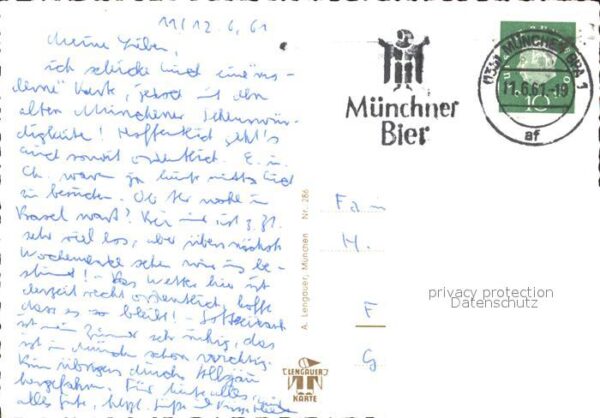 11/12. 6. 61
Meine Lieben,
ich schicke Euch eine "mo-
derne" Karte, jedoch mit den
alten Münchener Sehenswür-
digkeiten! Hoffentlich geht's
Euch soweit ordentlich. E. u.
Ch. waren ja heute nicht Euch
zu besuchen. Ob Ihr wohl in
Kassel wart? Bei mir ist z. Zt.
sehr viel los, aber übernächstes
Wochenende sehen wir uns be-
stimmt! - Das Wetter hier ist
derzeit recht ordentlich, hoffe
dass es so bleibt! -
ist mein Zimmer sehr ruhig, das
ist in München schon wichtig.
Bin übrigens durchs Allgäu
hergefahren. Für heute alles
alles Gute, herzl. Grüße
Münchner
Bier
(13b) MÜNCHEN BPA 1
11.6.61.-19
af
10
Fam
M.
F
G
A. Lengauer, München Nr. 286
LENGAUER
KARTE
privacy protection
Datenschutz